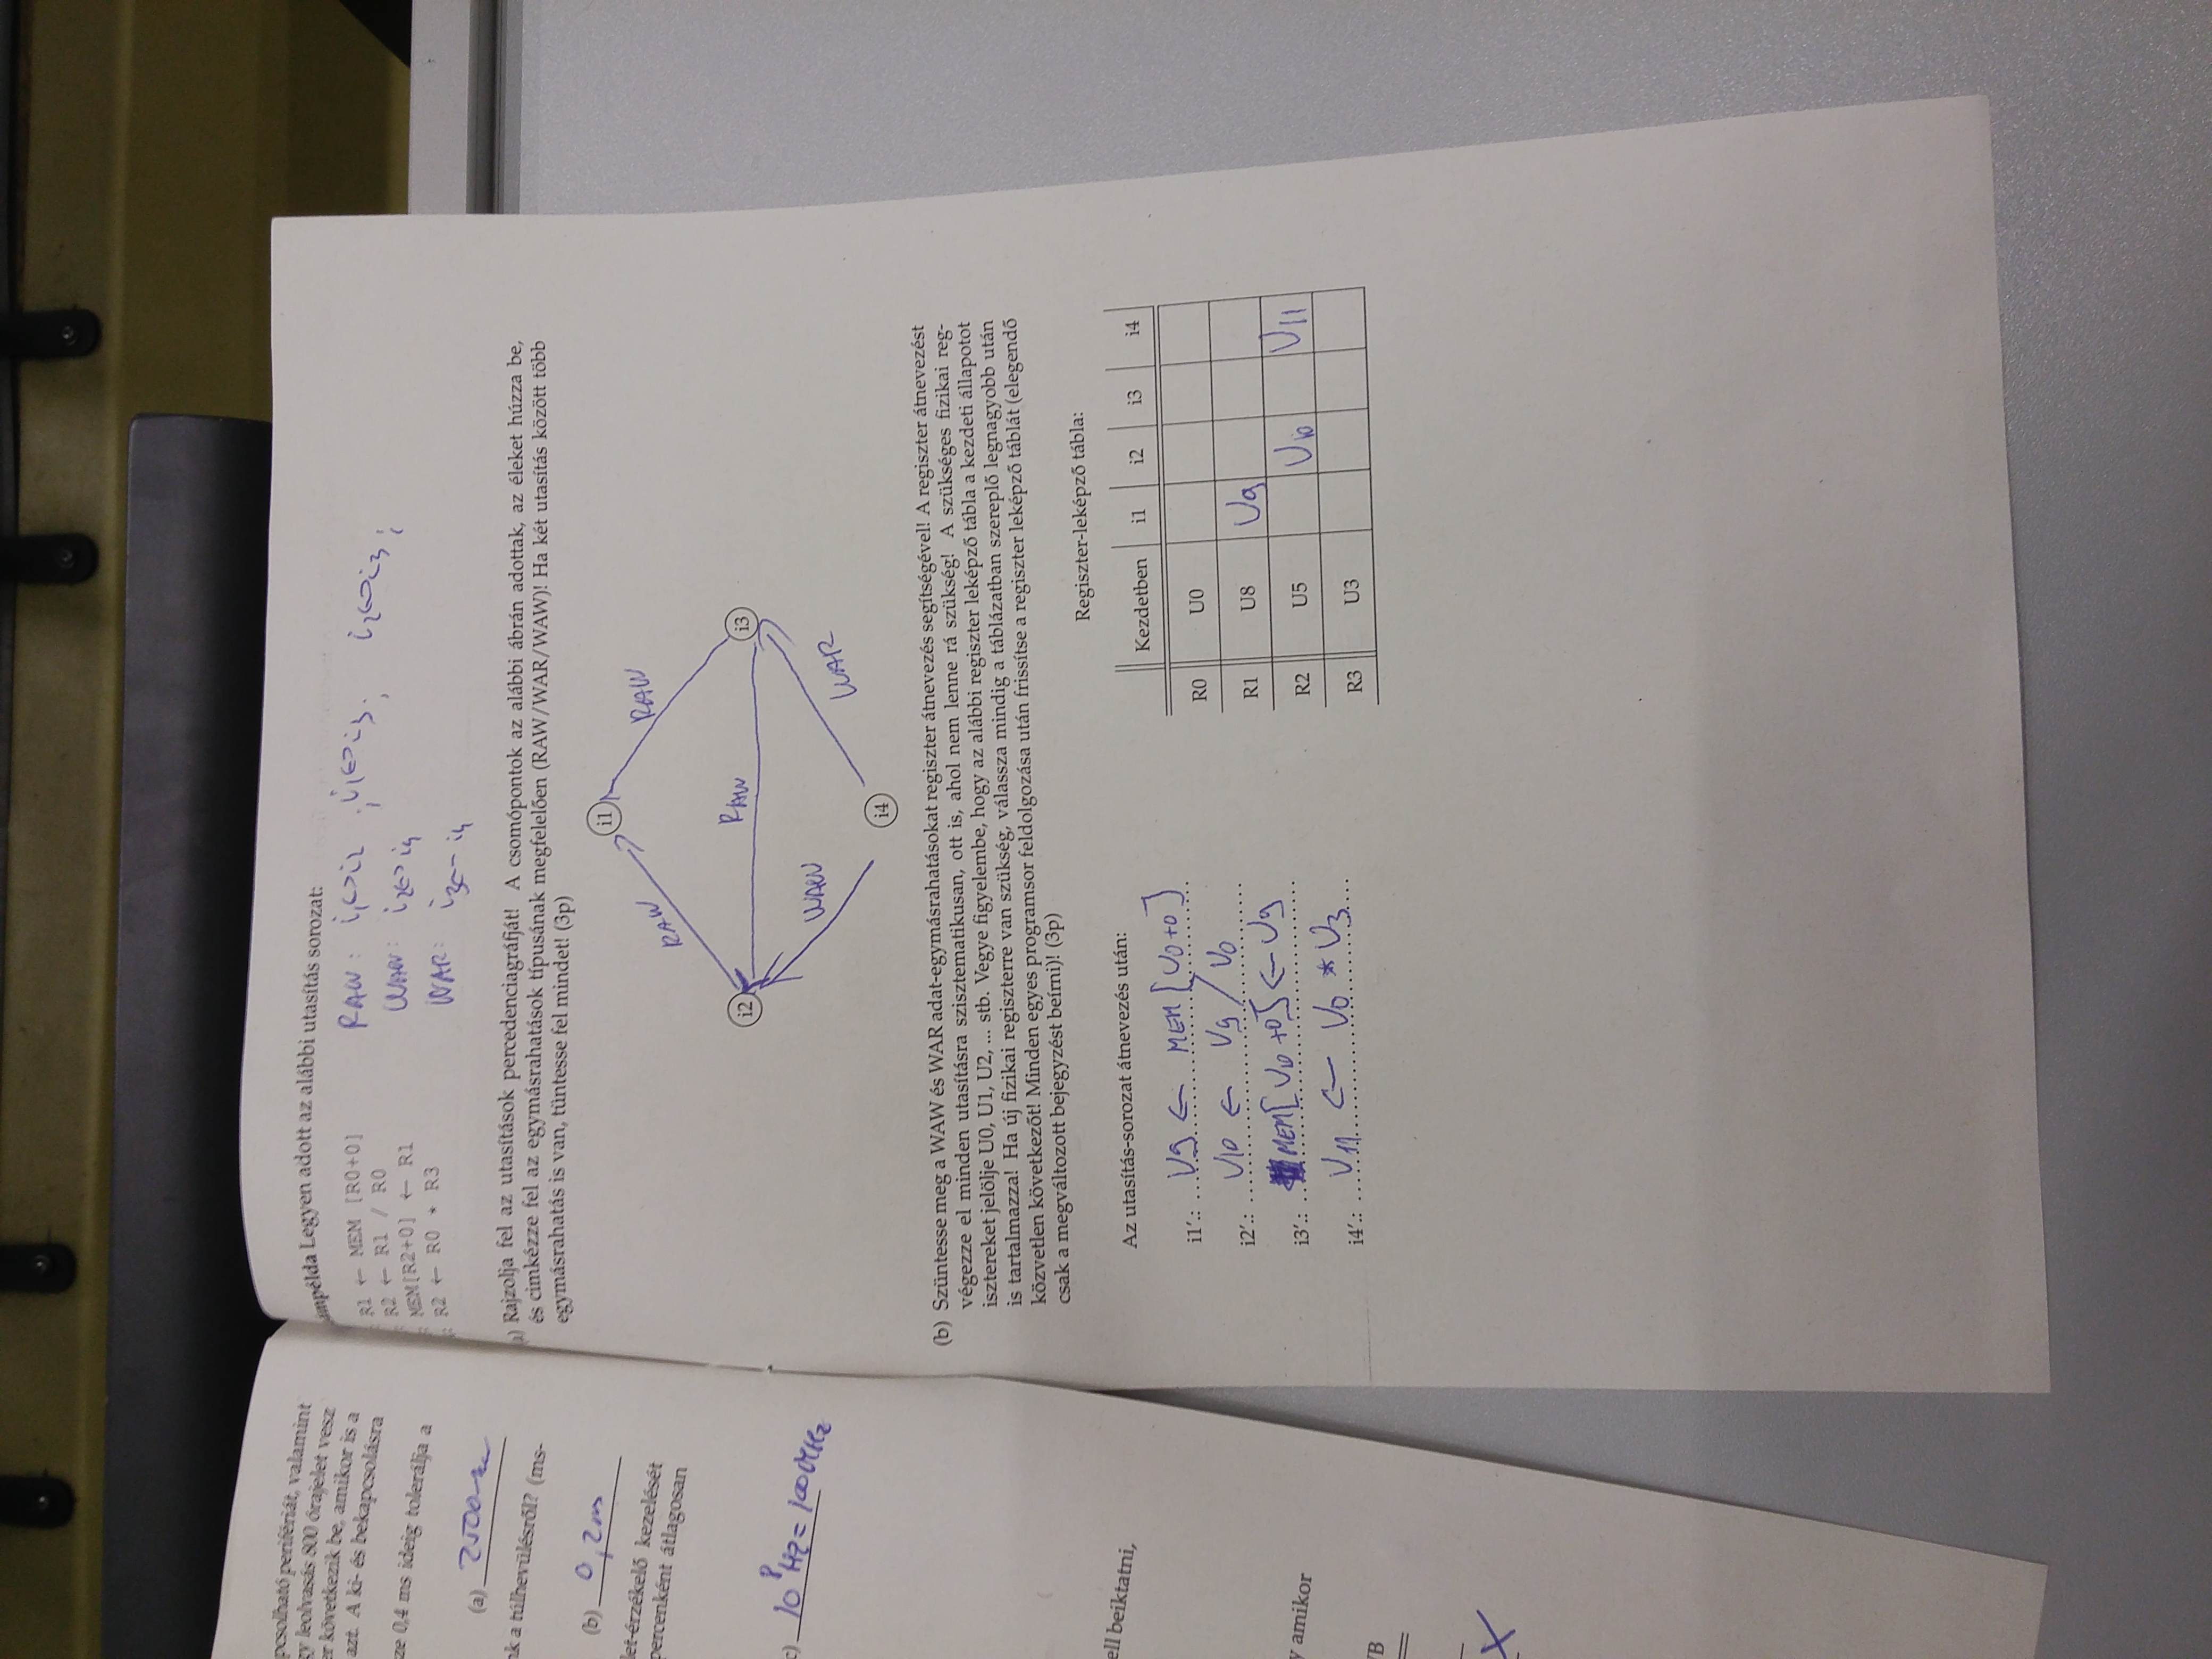 pcsolható perifériát, valamint
gy leolvasás 800 órajelet vesz
er következik be, amikor is a
azt. A ki- és bekapcsolásra
ze 0,4 ms ideig tolerálja a
(a)
nk a túlhevülésről? (ms-
(b) 0,2ms
let-érzékelő kezelését
percenként átlagosan
c) 10⁸Hz = 100MHz
ell beiktatni,
y amikor
/B
X
ámpélda Legyen adott az alábbi utasítás sorozat:
R1 ← MEM [R0+0]
R2 ← R1 / R0
MEM[R2+0] ← R1
R2 ← R0 * R3
RAW: i1<>i2 ; i1<>i3 ; i2<>i3 ;
WAW: i2<>i4
WAR: i3<-i4
a) Rajzolja fel az utasítások percedenciagráfját! A csomópontok az alábbi ábrán adottak, az éleket húzza be,
és címkézze fel az egymásrahatások típusának megfelelően (RAW/WAR/WAW)! Ha két utasítás között több
egymásrahatás is van, tüntesse fel mindet! (3p)
i1
RAW RAW
i2 RAW i3
WAW WAR
i4
(b) Szüntesse meg a WAW és WAR adat-egymásrahatásokat regiszter átnevezés segítségével! A regiszter átnevezést
végezze el minden utasításra szisztematikusan, ott is, ahol nem lenne rá szükség! A szükséges fizikai reg-
isztereket jelölje U0, U1, U2, ... stb. Vegye figyelembe, hogy az alábbi regiszter leképző tábla a kezdeti állapotot
is tartalmazza! Ha új fizikai regiszterre van szükség, válassza mindig a táblázatban szereplő legnagyobb után
közvetlen következőt! Minden egyes programsor feldolgozása után frissítse a regiszter leképző táblát (elegendő
csak a megváltozott bejegyzést beírni)! (3p)
Az utasítás-sorozat átnevezés után:
i1′.: U9 ← MEM[U0+0]
i2′.: U10 ← U9 / U0
i3′.: MEM[U10+0] ← U9
i4′.: U11 ← U0 * U3
Regiszter-leképző tábla:
Kezdetben i1 i2 i3 i4
R0 U0
R1 U8 U9
R2 U5 U10 U11
R3 U3